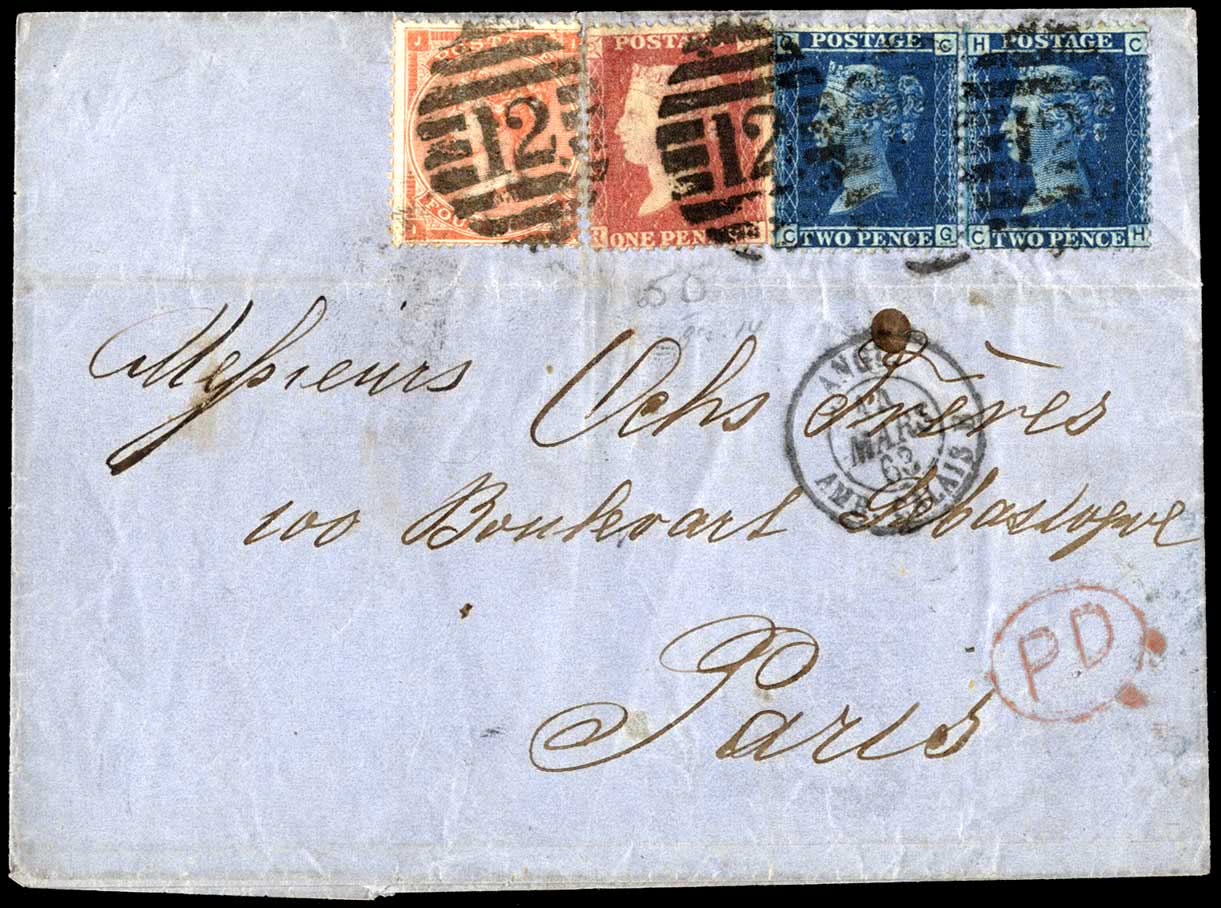 J POSTAGE
POSTAGE G
G POSTAGE C
H POSTAGE C
12
12
R ONE PENNY
C TWO PENCE G
C TWO PENCE H
50
14
Messieurs Ochs Frères
100 Boulevart Sébastopve
Paris
MARS
63
AMB. CALAIS
PD